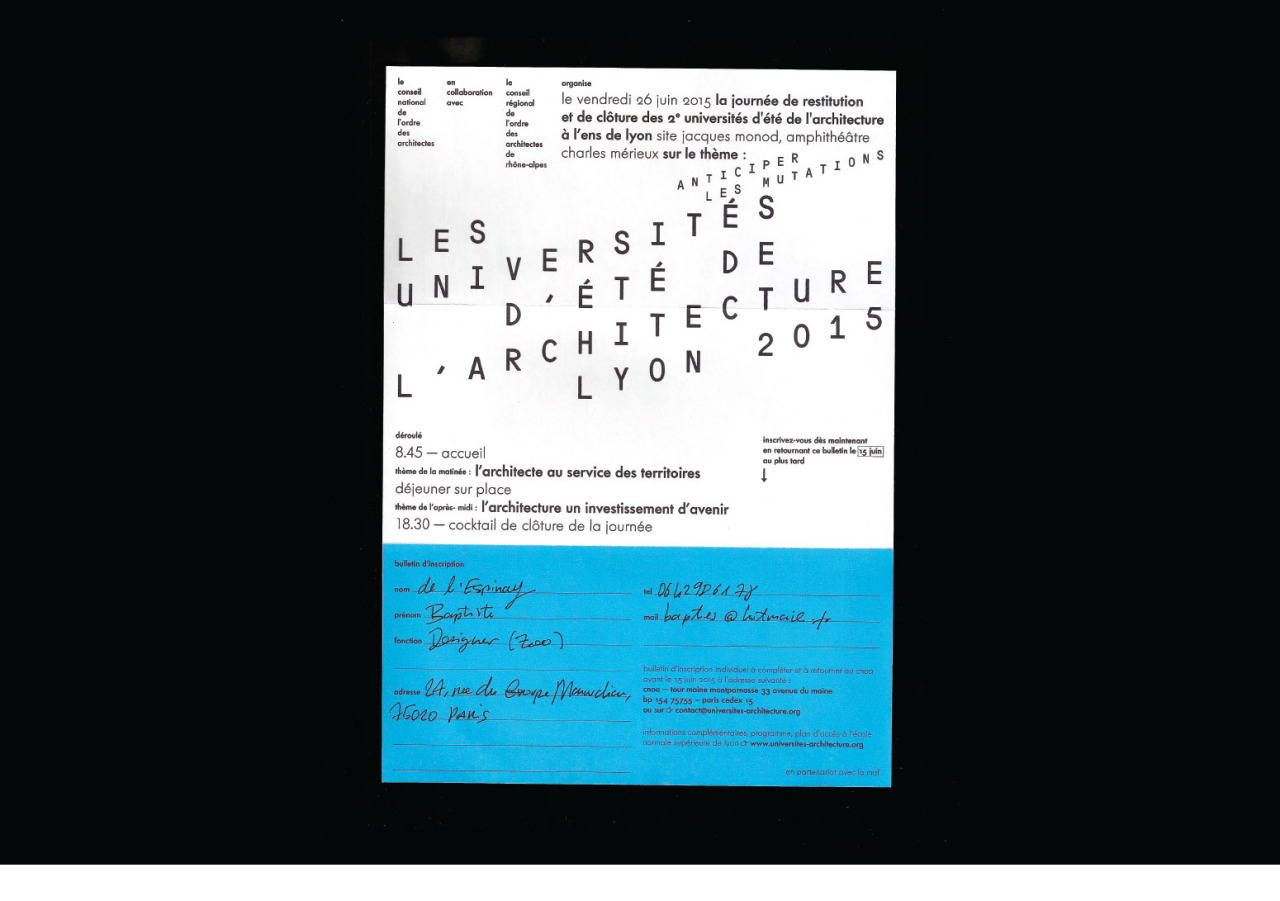 le
conseil
national
de
l'ordre
des
architectes
en
collaboration
avec
le
conseil
régional
de
l'ordre
des
architectes
de
rhône-alpes
organise
le vendredi 26 juin 2015 la journée de restitution
et de clôture des 2e universités d'été de l'architecture
à l'ens de lyon site jacques monod, amphithéâtre
charles mérieux sur le thème :
ANTICIPER
LES MUTATIONS
LES
UNIVERSITÉS
D'ÉTÉ DE
L'ARCHITECTURE
LYON 2015
déroulé
8.45 — accueil
thème de la matinée : l'architecte au service des territoires
déjeuner sur place
thème de l'après- midi : l'architecture un investissement d'avenir
18.30 — cocktail de clôture de la journée
inscrivez-vous dès maintenant
en retournant ce bulletin le 15 juin
au plus tard
↓
bulletin d'inscription
nom de l'Espinay
prénom Baptiste
fonction Designer
adresse rue du
75020 PARIS
tel
mail @hotmail.fr
bulletin d'inscription individuel à compléter et à retourner au cnoa
avant le 15 juin 2015 à l'adresse suivante :
cnoa — tour maine montparnasse 33 avenue du maine
bp 154 75755 — paris cedex 15
ou sur ☞ contact@universites-architecture.org
informations complémentaires, programme, plan d'accès à l'école
normale supérieure de lyon ☞ www.universites-architecture.org
en partenariat avec la maf